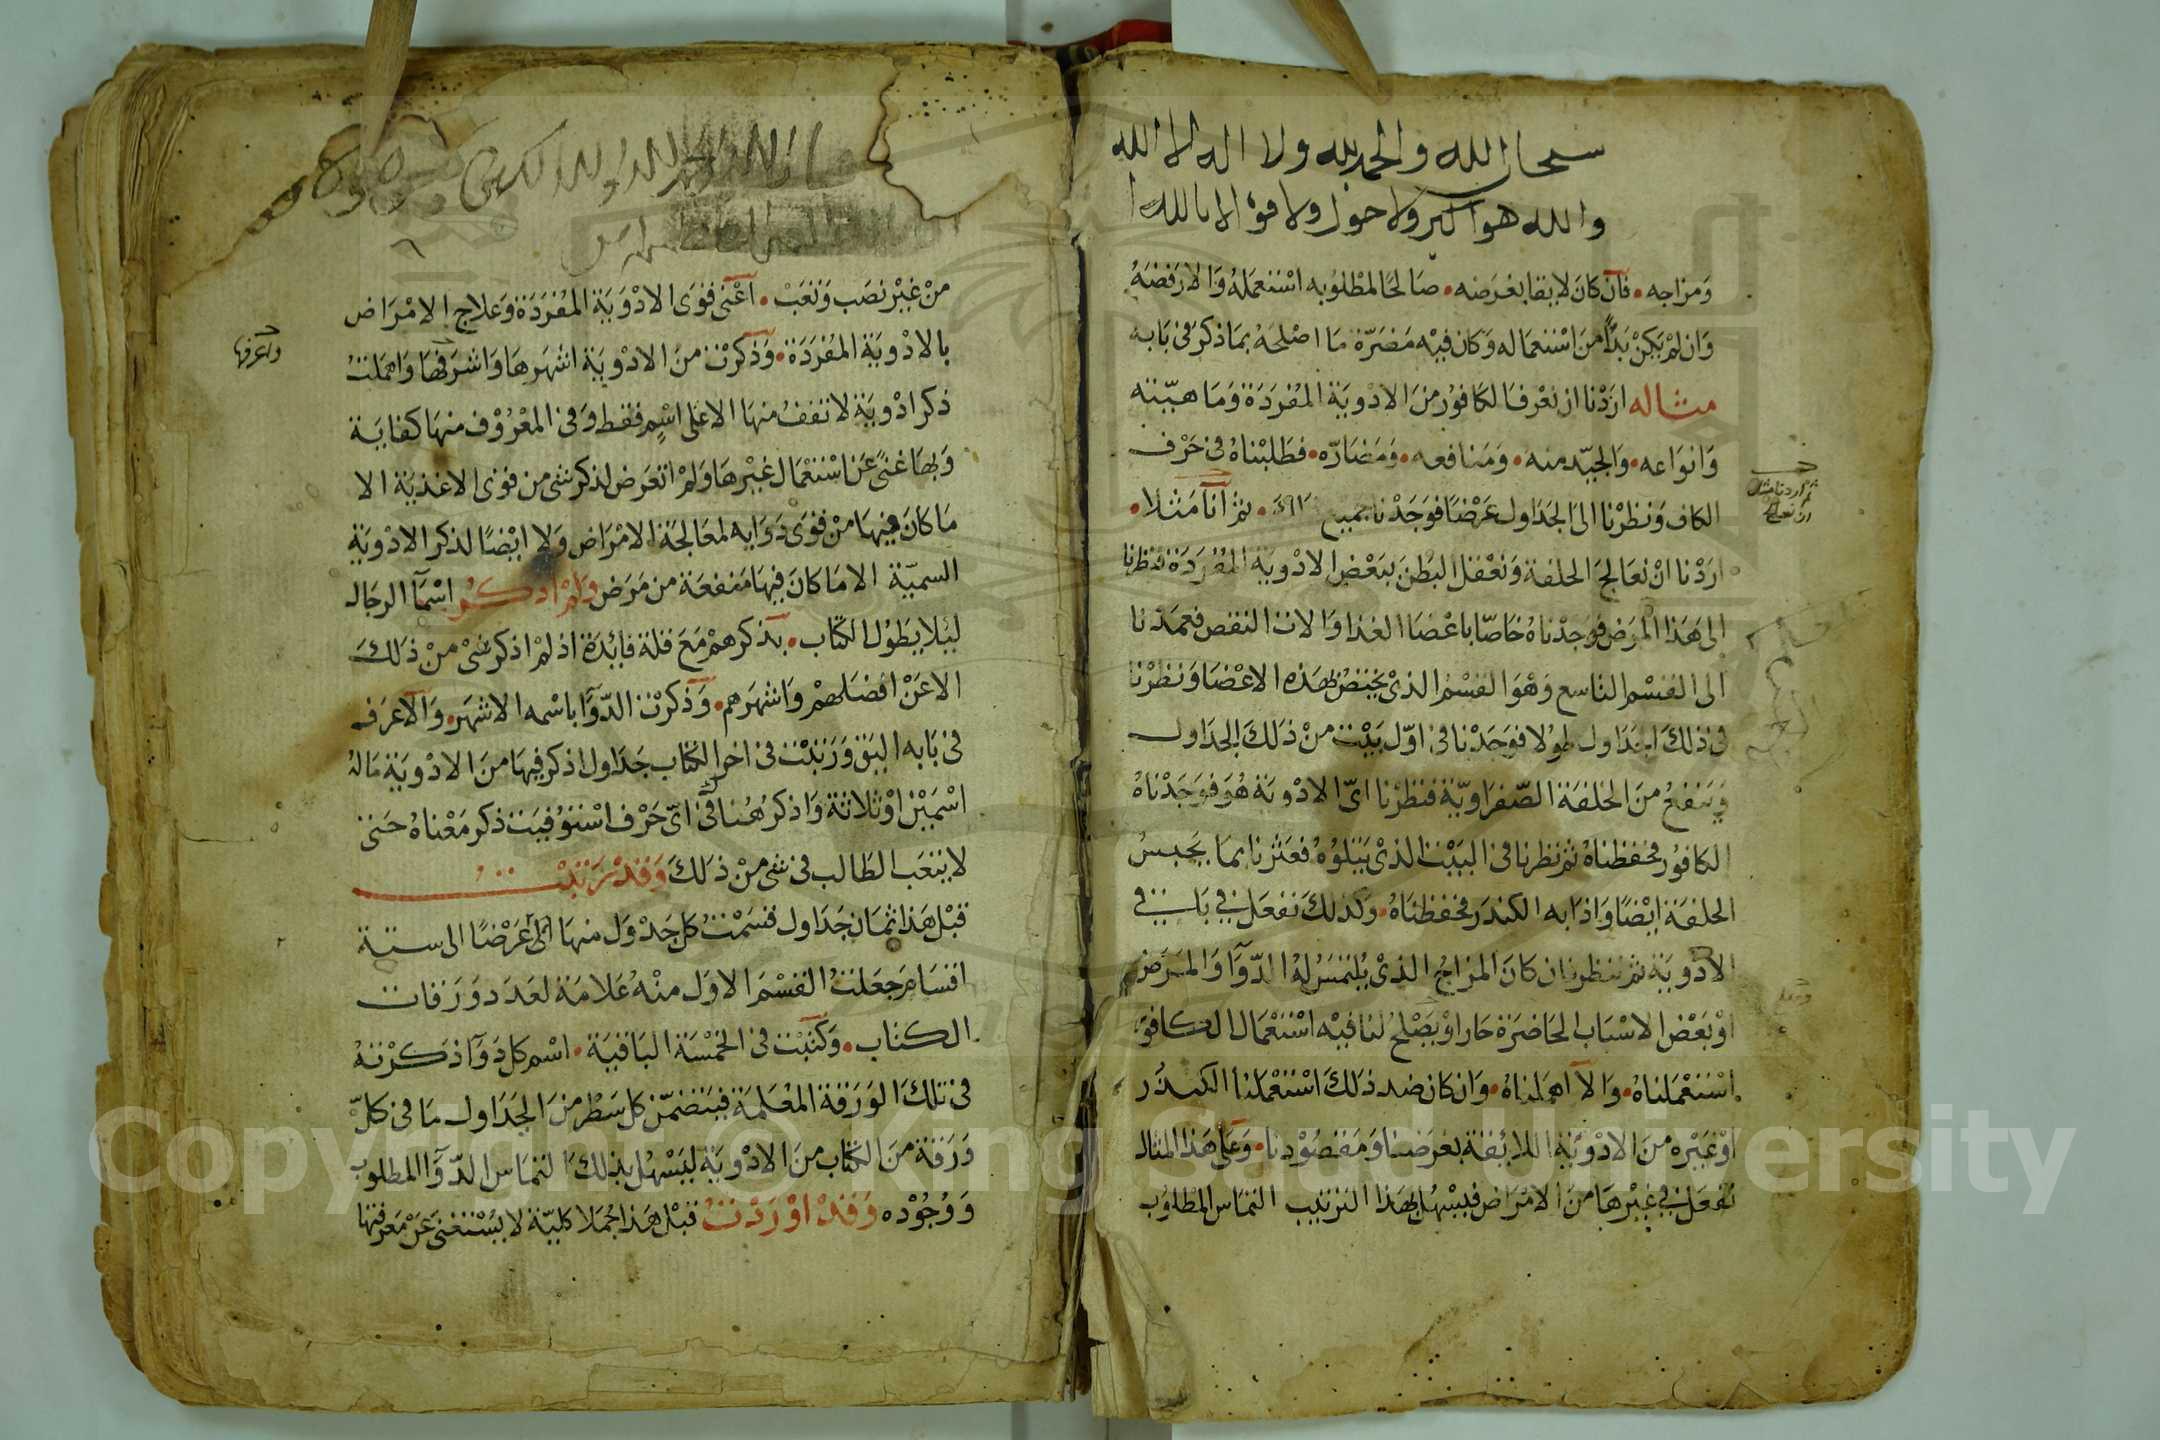 سبحان الله والحمد لله ولا اله الا الله
والله هو اكبر ولا حول ولا قوة الا بالله ا
وَمزاجه • فآن كانَ لايقا بغرَضه • صَالحًا لمطْلوُبه اسْتعمَلهُ وَالا رَفضهُ
وَان لمْ يَكنْ بَدًّا منَ اسْتعمَاله وَكان فيْه مَضرّة مَا اصْلحَهُ بمَا ذكرَ فى بَابه
مثاله ارَدْنا ان نعْرفَ الكافوُر منَ الادْويَة المُفرَدَة وَمَا هيّته
وَانوَاعه • وَالجيّد منه • وَمَنافعه • وَمَضارّه • فطَلبْناهُ فى حَرْف
الكاف وَنظرْنا الى الجدَاول عَرْضًا فوَجَدْناه • ثم آنآ مَثلا •
ارَدْنا انْ نعَالجَ الخلفة وَنعْقل البطْن ببَعْض الادْويَة المُفرَدَة فنظرنا
الى هَذا المرَض فوَجدْناهُ خاصّا باعْضا الغذا وَالات النفض فعمَدْنا
الى القسْم التاسع وَهوَ القسْم الذىْ يَختصُّ بهَذه الاعْضا وَنظرْنا
فى ذلكَ الجدَاول طوُلا فوَجَدْنا فى اوّل بَيْت منْ ذلكَ الجدَاول
وَينفعُ منَ الخلفة الصّفرَاويّة فنظرْنا اىّ الادْويَة هُوَ فوَجَدْناهُ
الكافوُر فحفظناهُ ثم نظرنا فى البَيْت الذىْ يَتلوُهُ فعَثرْنا بمَا يَحبسُ
الخلفة ايْضًا وَاذا به الكندَر فحفظنَاهُ • وَكذلكَ نفعَل فى باقى
الادْويَة ثم ننظر فان كانَ المزَاجُ الذىْ يُلتمَسُ لهُ الدّوَآ وَالمرَض
اوْ بَعْض الاسْبَاب الحَاضرَة حَارا وْ يَصْلحُ لنا فيْه اسْتعْمَال الكافوُر
اسْتعْمَلناهُ • وَالا اهمَلناهُ • وَان كان ضد ذلكَ اسْتعْمَلنا الكندُر
اوْ غيْره منَ الادْويَة اللائقة بغرَضنا وَمَقصُوْدنا • وَعلى هَذا المثال
نفعَل فى غيْرهَا منَ الامْرَاض فيَسْهُل بهَذا الترْتيب التمَاس المطلوُب
ثم اردنا مثلا
ان نعالج
منْ غيْر نصَب وَتعَبْ • اعْنى قوَى الادْوَيَة المُفرَدَة وَعلاج الامْرَاض
بالادْويَة المُفرَدَة • وَذكرْت منَ الادْويَة اشهَرهَا وَاشرَفهَا وَاهمَلتُ
ذكر ادْويَة لا نقفُ منهَا الا عَلى اسْمٍ فقط وَفى المعْرُوْف منهَا كفايَة
وَبهَا غنىً عَن اسْتعْمَال غيْرهَا وَلمْ اتعَرض لذكر شى من قوى الاغذيَة الا
مَا كانَ فيهَا منْ قوَى دَوَايه لمعَالجَة الامْرَاض وَلا ايْضًا لذكر الادْويَة
السميّة الا مَا كانَ فيهَا مَنفعَة من مَرَض وَلمْ اذكر اسْمَآ الرجَال
ليْلا يَطوُل الكتَاب • بَذكرهمْ مَعَ قلة فائدَة اذ لمْ اذكر شىْ منْ ذلكَ
الا عَنْ افضَلهمْ وَاشهَرهم • وَذكرْت الدّوَآ باسْمه الاشهَر • وَالاعرَف
فى بَابه اليَق وَرَتبْت فى اخر الكتاب جَدَاول اذكر فيهَا منَ الادْويَة مَا لهُ
اسْمَيْن اوْ ثلاثة وَاذكرُ هُناك فى اىّ حَرْف اسْتوُفيَت ذكر مَعْناهُ حَتى
لا يتعَب الطَالب فى شى منْ ذلكَ وَقدْ رَتبْت
قبْل هَذا ثمَان جَدَاول قسَمْتُ كل جَدْوَل منهَا عَرْضًا الى ستة
اقسَام جَعلتُ القسْمَ الاوَل منْهُ عَلامَة لعَدَد وَرَقات
الكتاب • وَكتبْت فى الخمْسَة البَاقيَة • اسْم كل دَوَآ ذكرْتهُ
فى تلكَ الوَرَقة المُعْلمَة فيَتضمّن كل سَطْر منَ الجدَاول مَا فى كلّ
وَرَقة منَ الكتَاب منَ الادْويَة ليَسْهُل بذلكَ التمَاس الدّوَآ المطلوب
وَوُجُوْده وَقدْ اوْرَدْتُ قبْل هَذا جُمَلا كليّة لا يَسْتغنى عَنْ مَعرفتهَا
واعرفها
Copyright © King Saud University